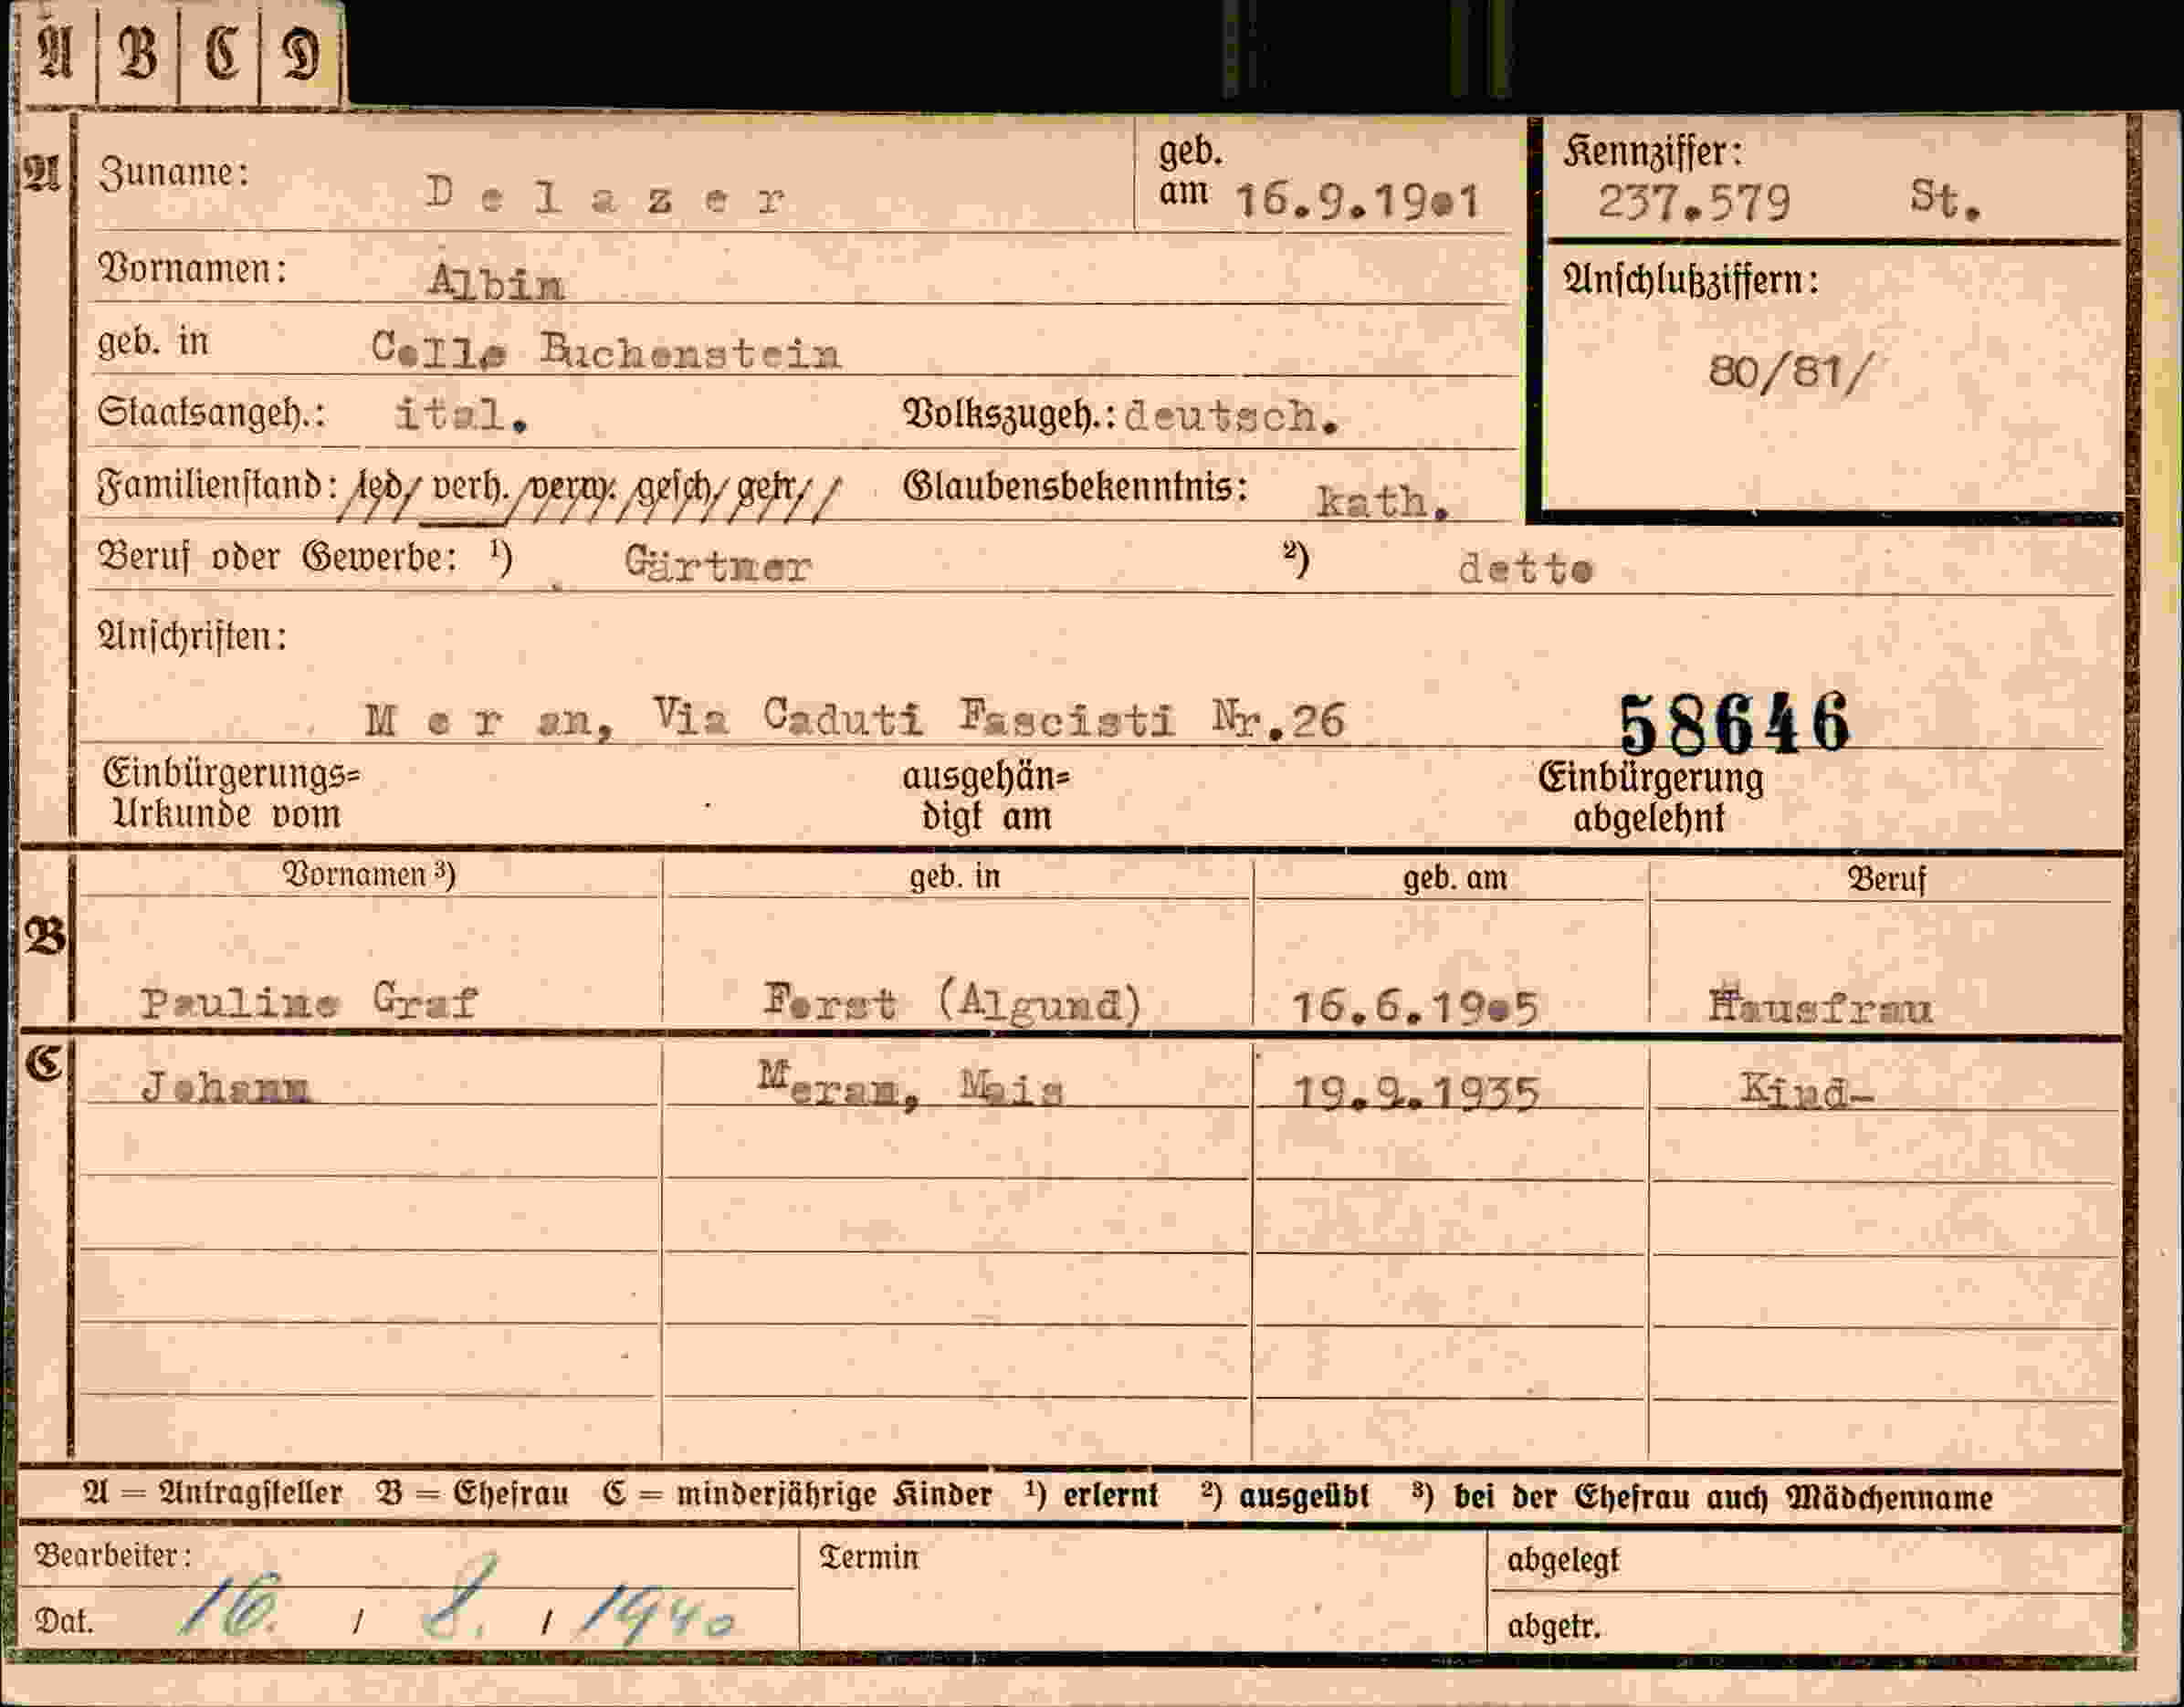 A B C D
A Zuname: Delazer geb. am 16.9.1901 Kennziffer: 237.579 St.
Vornamen: Albin Anschlußziffern:
geb. in Colle Buchenstein 80/81/
Staatsangeh.: ital. Volkszugeh.: deutsch.
Familienstand: led/ verh. /verw. /gesch/ getr/ / Glaubensbekenntnis: kath.
Beruf oder Gewerbe: 1) Gärtner 2) detto
Anschriften:
Meran, Via Caduti Fascisti Nr.26 58646
Einbürgerungs= ausgehän= Einbürgerung
Urkunde vom digt am abgelehnt
Vornamen 3) geb. in geb. am Beruf
B
Pauline Graf Forst (Algund) 16.6.1905 Hausfrau
C Johann Meran, Mais 19.9.1935 Kind-
A = Antragsteller B = Ehefrau C = minderjährige Kinder 1) erlernt 2) ausgeübt 3) bei der Ehefrau auch Mädchenname
Bearbeiter: Termin abgelegt
Dat. 16. / 8. / 1940 abgetr.